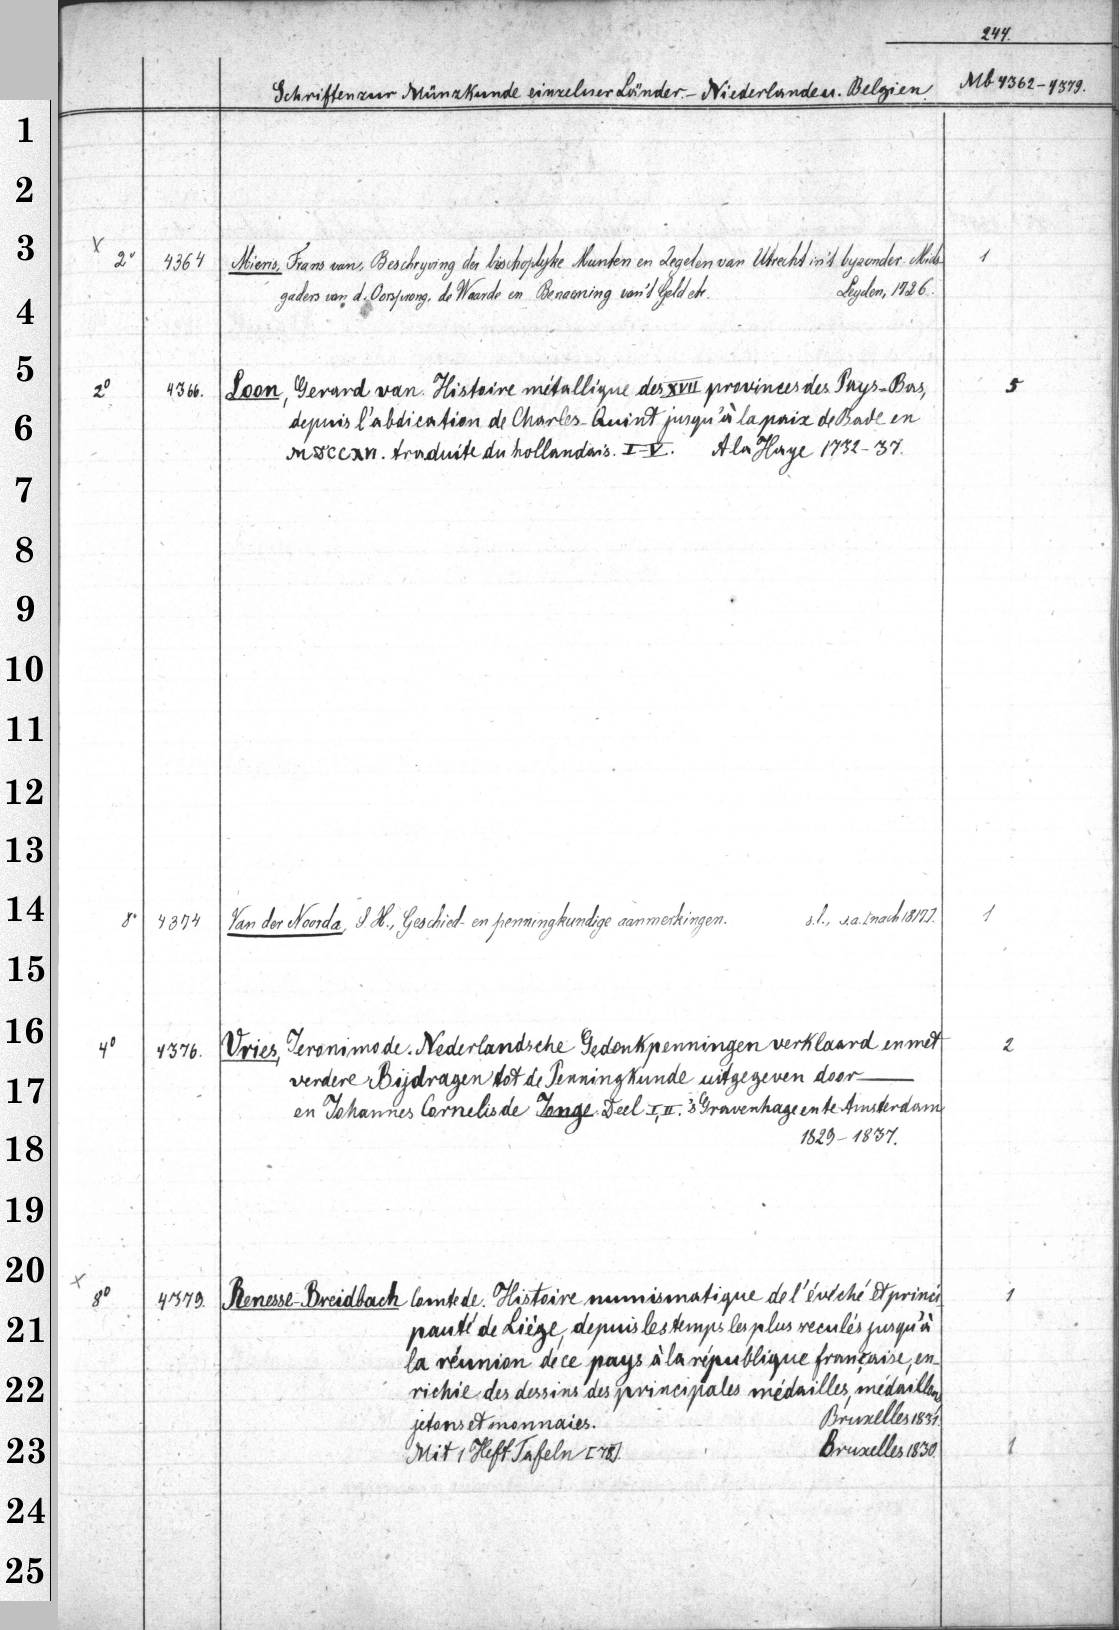 244.
Schriften zur Münzkunde einzelner Länder. – Niederlande u. Belgien. Mb 4362–4379.
1
2
3
X 2° 4364 Mieris, Frans van, Beschryving der bisschoplyke Munten en Zegelen van Utrecht in't byzonder. Mids- 1
gaders van d. Oorsprong, de Waarde en Benaeming van't Geld etc. Leyden, 1726.
4
5
2° 4366. Loon, Gerard van. Histoire métallique des XVII provinces des Pays-Bas, 5
depuis l'abdication de Charles-Quint jusqu'à la paix de Bade en
6
MDCCXVI. traduite du hollandais. I–V. A la Haye 1732–37.
7
8
9
10
11
12
13
14
8° 4374 Van der Noorda, S. H., Geschied- en penningkundige aanmerkingen. s.l., s.a. [nach 1817]. 1
15
16
4° 4376. Vries, Jeronimo de. Nederlandsche Gedenkpenningen verklaard en met 2
verdere Bijdragen tot de Penningkunde uitgegeven door ——
17
en Johannes Cornelis de Jonge. Deel I, II. 's Gravenhage en te Amsterdam
1829–1837.
18
19
20
X 8° 4379. Renesse-Breidbach Comte de. Histoire numismatique de l'évéché et princi- 1
21
pauté de Liége, depuis les temps les plus reculés jusqu'à
la réunion de ce pays à la république française, en-
22
richie des dessins des principales médailles, médaillons
jetons et monnaies. Bruxelles 1831.
23
Mit 1 Heft Tafeln Bruxelles 1830. 1
24
25